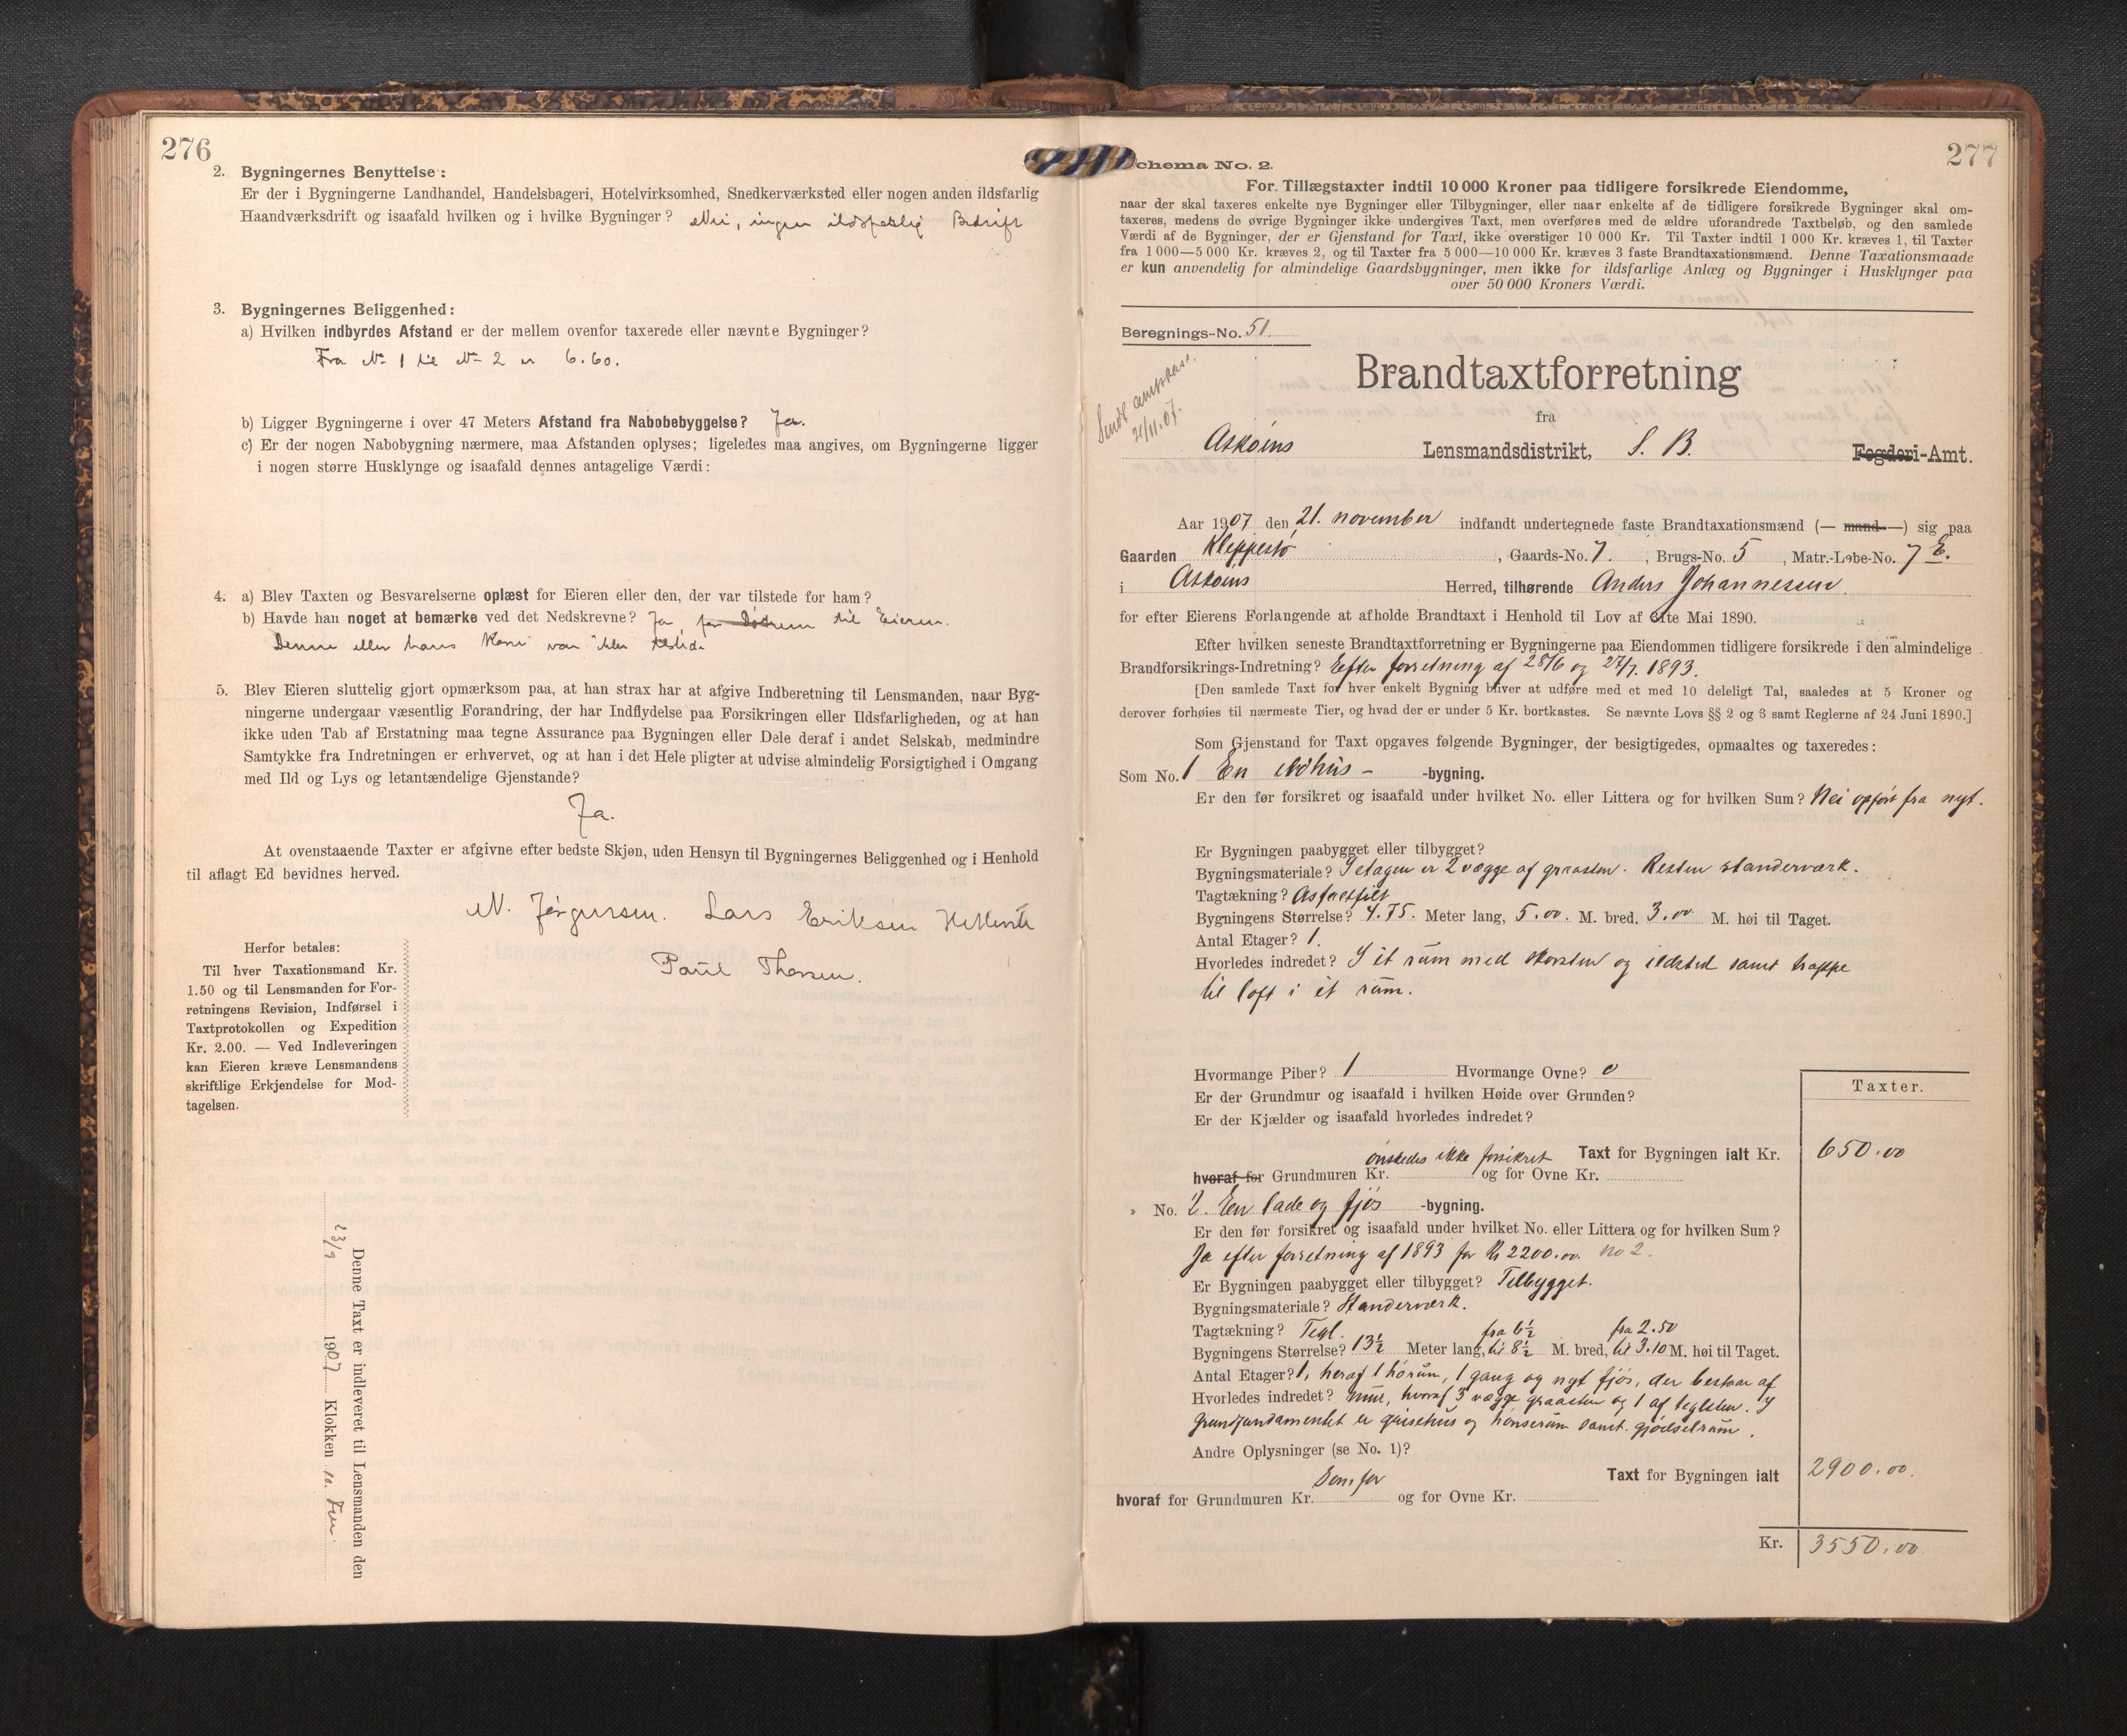 276
2. Bygningernes Benyttelse:
Er der i Bygningerne Landhandel, Handelsbageri, Hotelvirksomhed, Snedkerværksted eller nogen anden ildsfarlig
Haandværksdrift og isaafald hvilken og i hvilke Bygninger? Nei, ingen ildsfarlig Bedrift
3. Bygningernes Beliggenhed:
a) Hvilken indbyrdes Afstand er der mellem ovenfor taxerede eller nævnte Bygninger?
Fra No 1 til No 2 er 6.60.
b) Ligger Bygningerne i over 47 Meters Afstand fra Nabobebyggelse? Ja.
c) Er der nogen Nabobygning nærmere, maa Afstanden oplyses; ligeledes maa angives, om Bygningerne ligger
i nogen større Husklynge og isaafald dennes antagelige Værdi:
4. a) Blev Taxten og Besvarelserne oplæst for Eieren eller den, der var tilstede for ham?
b) Havde han noget at bemærke ved det Nedskrevne? Ja, for til Eieren.
Denne eller hans Kone var ikke tilstede
5. Blev Eieren sluttelig gjort opmærksom paa, at han strax har at afgive Indberetning til Lensmanden, naar Byg-
ningerne undergaar væsentlig Forandring, der har Indflydelse paa Forsikringen eller Ildsfarligheden, og at han
ikke uden Tab af Erstatning maa tegne Assurance paa Bygningen eller Dele deraf i andet Selskab, medmindre
Samtykke fra Indretningen er erhvervet, og at han i det Hele pligter at udvise almindelig Forsigtighed i Omgang
med Ild og Lys og letantændelige Gjenstande?
Ja.
At ovenstaaende Taxter er afgivne efter bedste Skjøn, uden Hensyn til Bygningernes Beliggenhed og i Henhold
til aflagt Ed bevidnes herved.
N. Jørgensen. Lars Eriksen
Paul Thorsen.
Herfor betales:
Til hver Taxationsmand Kr.
1.50 og til Lensmanden for For-
retningens Revision, Indførsel i
Taxtprotokollen og Expedition
Kr. 2.00. — Ved Indleveringen
kan Eieren kræve Lensmandens
skriftlige Erkjendelse for Mod-
tagelsen.
Denne Taxt er indleveret til Lensmanden den
23/9 1907 Klokken 10. Fm.
277
Schema No. 2.
For Tillægstaxter indtil 10 000 Kroner paa tidligere forsikrede Eiendomme,
naar der skal taxeres enkelte nye Bygninger eller Tilbygninger, eller naar enkelte af de tidligere forsikrede Bygninger skal om-
taxeres, medens de øvrige Bygninger ikke undergives Taxt, men overføres med de ældre uforandrede Taxtbeløb, og den samlede
Værdi af de Bygninger, der er Gjenstand for Taxt, ikke overstiger 10 000 Kr. Til Taxter indtil 1 000 Kr. kræves 1, til Taxter
fra 1 000—5 000 Kr. kræves 2, og til Taxter fra 5 000—10 000 Kr. kræves 3 faste Brandtaxationsmænd. Denne Taxationsmaade
er kun anvendelig for almindelige Gaardsbygninger, men ikke for ildsfarlige Anlæg og Bygninger i Husklynger paa
over 50 000 Kroners Værdi.
Beregnings-No. 51.
Sendt amtskas.
21/11.07.
Brandtaxtforretning
fra
Askøens Lensmandsdistrikt, S. B. Fogderi-Amt.
Aar 1907 den 21. november indfandt undertegnede faste Brandtaxationsmænd (— mand —) sig paa
Gaarden Kleppestø, Gaards-No. 7, Brugs-No. 5, Matr.-Løbe-No. 7 E.
i Askøens Herred, tilhørende Anders Johannesen
for efter Eierens Forlangende at afholde Brandtaxt i Henhold til Lov af 31te Mai 1890.
Efter hvilken seneste Brandtaxtforretning er Bygningerne paa Eiendommen tidligere forsikrede i den almindelige
Brandforsikrings-Indretning? Efter forretning af 28/6 og 27/7. 1893.
[Den samlede Taxt for hver enkelt Bygning bliver at udføre med et med 10 deleligt Tal, saaledes at 5 Kroner og
derover forhøies til nærmeste Tier, og hvad der er under 5 Kr. bortkastes. Se nævnte Lovs §§ 2 og 3 samt Reglerne af 24 Juni 1890.]
Som Gjenstand for Taxt opgaves følgende Bygninger, der besigtigedes, opmaaltes og taxeredes:
Som No. 1 En ildhus - -bygning.
Er den før forsikret og isaafald under hvilket No. eller Littera og for hvilken Sum? Nei opført fra nyt.
Er Bygningen paabygget eller tilbygget?
Bygningsmateriale? I etagen er 2 vægge af graasten. Resten standerværk.
Tagtækning? Asfaltfilt
Bygningens Størrelse? 4.75. Meter lang, 5.00. M. bred, 3.00 M. høi til Taget.
Antal Etager? 1.
Hvorledes indredet? I ét rum med skorsten og ildsted samt trappe
til loft i ét rum.
Hvormange Piber? 1 Hvormange Ovne? 0
Er der Grundmur og isaafald i hvilken Høide over Grunden?
Er der Kjælder og isaafald hvorledes indredet?
Taxter.
Taxt for Bygningen ialt Kr. 650.00
hvoraf for Grundmuren Kr. ønskedes ikke forsikret og for Ovne Kr.
» No. 2. En lade og fjøs -bygning.
Er den før forsikret og isaafald under hvilket No. eller Littera og for hvilken Sum?
Ja efter forretning af 1893 for Kr 2200.00. no 2.
Er Bygningen paabygget eller tilbygget? Tilbygget.
Bygningsmateriale? Standerværk.
Tagtækning? Tegl. fra 6½ fra 2.50
Bygningens Størrelse? 13½ Meter lang, til 8½ M. bred, til 3.10 M. høi til Taget.
Antal Etager? 1, heraf 1 hørum, 1 gang og nyt fjøs, der bestaar af
Hvorledes indredet? mur, hvoraf 3 vægge graasten og 1 af teglsten. I
grundfundamentet er grisehus og hønserum samt gjødselrum.
Andre Oplysninger (se No. 1)?
Taxt for Bygningen ialt 2900.00.
hvoraf for Grundmuren Kr. Som før og for Ovne Kr.
Kr. 3550.00